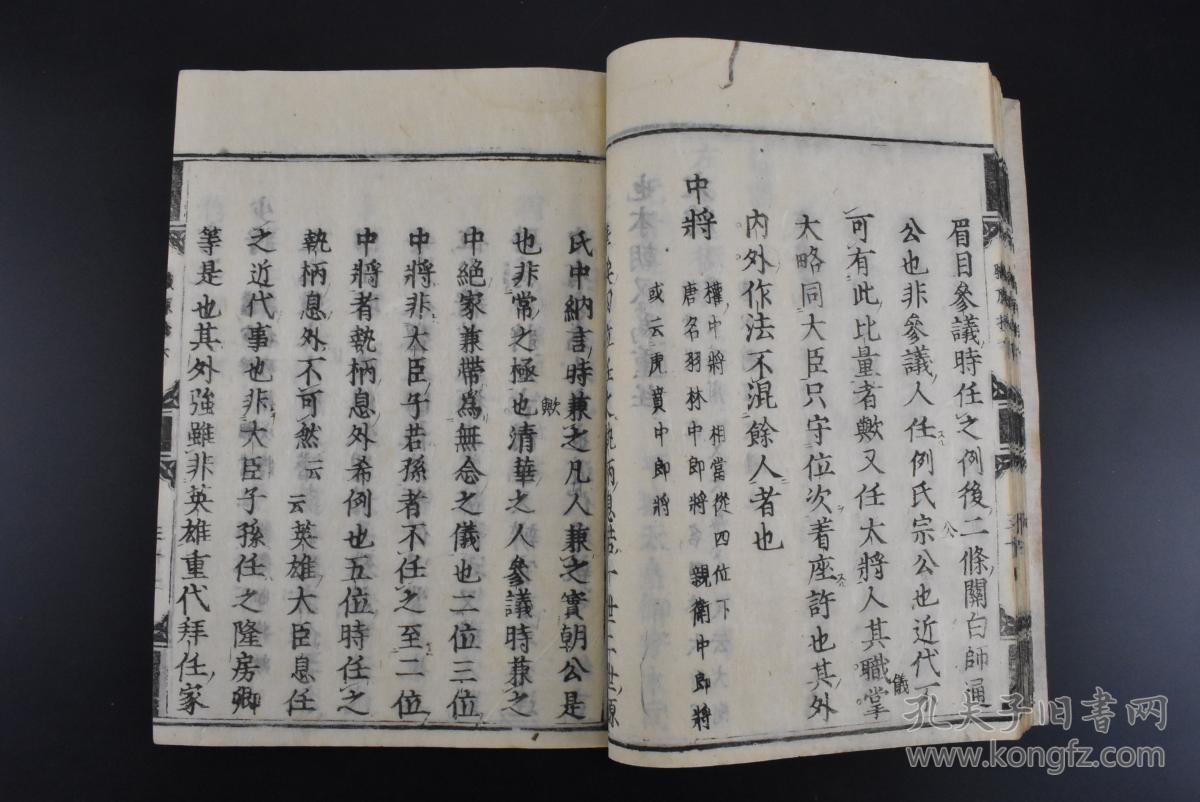 眉目參議時任之例後二條關白師通
公也非參議人任例氏宗公也近代
可有此比量者歟又任大將人其職掌
儀
大略同大臣只守位次着座許也其外
内外作法不混餘人者也
中將
權中將 相當從四位下
唐名羽林中郎將 親衛中郎將
或云虎賁中郎將
氏中納言時兼之凡人兼之實朝公是
歟
也非常之極也清華之人參議時兼之
中絕家兼帶爲無念之儀也二位三位
中將非大臣子若孫者不任之至二位
中將者執柄息外希例也五位時任之
執柄息外不可然云云英雄大臣息任
之近代事也非大臣子孫任之隆房卿
等是也其外強雖非英雄重代拜任家
孔夫子旧书网
www.kongfz.com